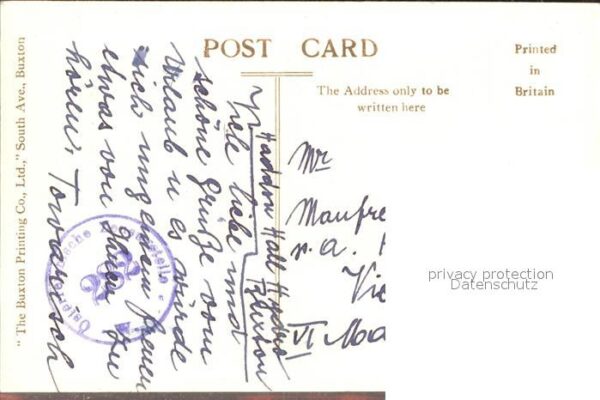 POST CARD
Printed
in
Britain
The Address only to be
written here
"The Buxton Printing Co., Ltd.," South Ave., Buxton
Haddon Hall Hydro
Buxton
Viele liebe und
schöne Grüße vom
Urlaub u es würde
mich ungemein freuen
etwas von Ihnen zu
hören. Towarisch
Mr
Manfre
n. a.
Vie
VI
Österreichische Zensurstelle
privacy protection
Datenschutz